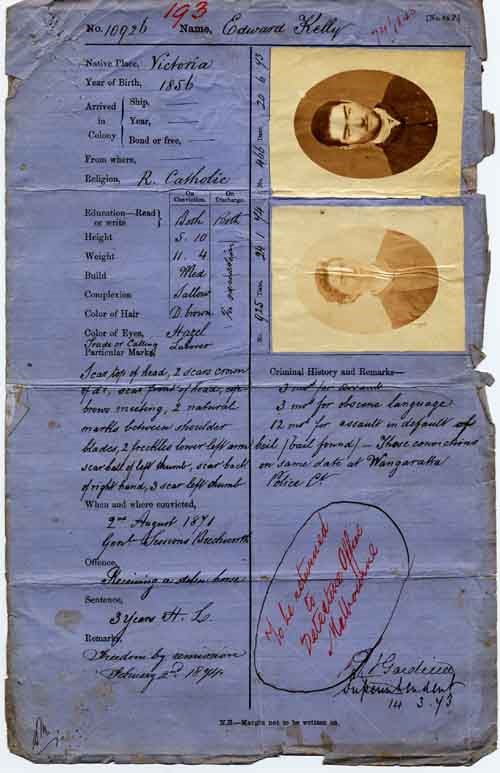 193
No. 10926 Name, Edward Kelly
[No.
Native Place, Victoria
Year of Birth, 1856
Arrived in Colony { Ship, —
Year, —
Bond or free, —
From where, —
Religion, R. Catholic
On Conviction. On Discharge.
Education—Read or write } Both Both
Height 5. 10
Weight 11. 4
Build Med
Complexion Sallow
Color of Hair D. brown
Color of Eyes, Hazel
Trade or Calling Labourer
Particular Marks,
Scar top of head, 2 scars crown
of do, scar front of head, eye
brows meeting, 2 natural
marks between shoulder
blades, 2 freckles lower left arm
scar ball of left thumb, scar back
of right hand, 3 scar left thumb
When and where convicted,
2nd August 1871
Genl Sessions Beechworth
Offence,
Receiving a stolen horse
Sentence,
3 Years H. L.
Remarks,
Freedom by remission
February 2nd 1874.
No. 466 Taken 20 6 73
No. 925 Taken 24 1 74
Criminal History and Remarks—
3 mos for assault
3 mos for obscene language
12 mos for assault in default of
bail (bail found) — Those convictions
on same date at Wangaratta
Police Ct.
To be returned
to
Detective Office
Melbourne
Gardiner
Superintendent
14 . 3 . 73
N.B.—Margin not to be written on.